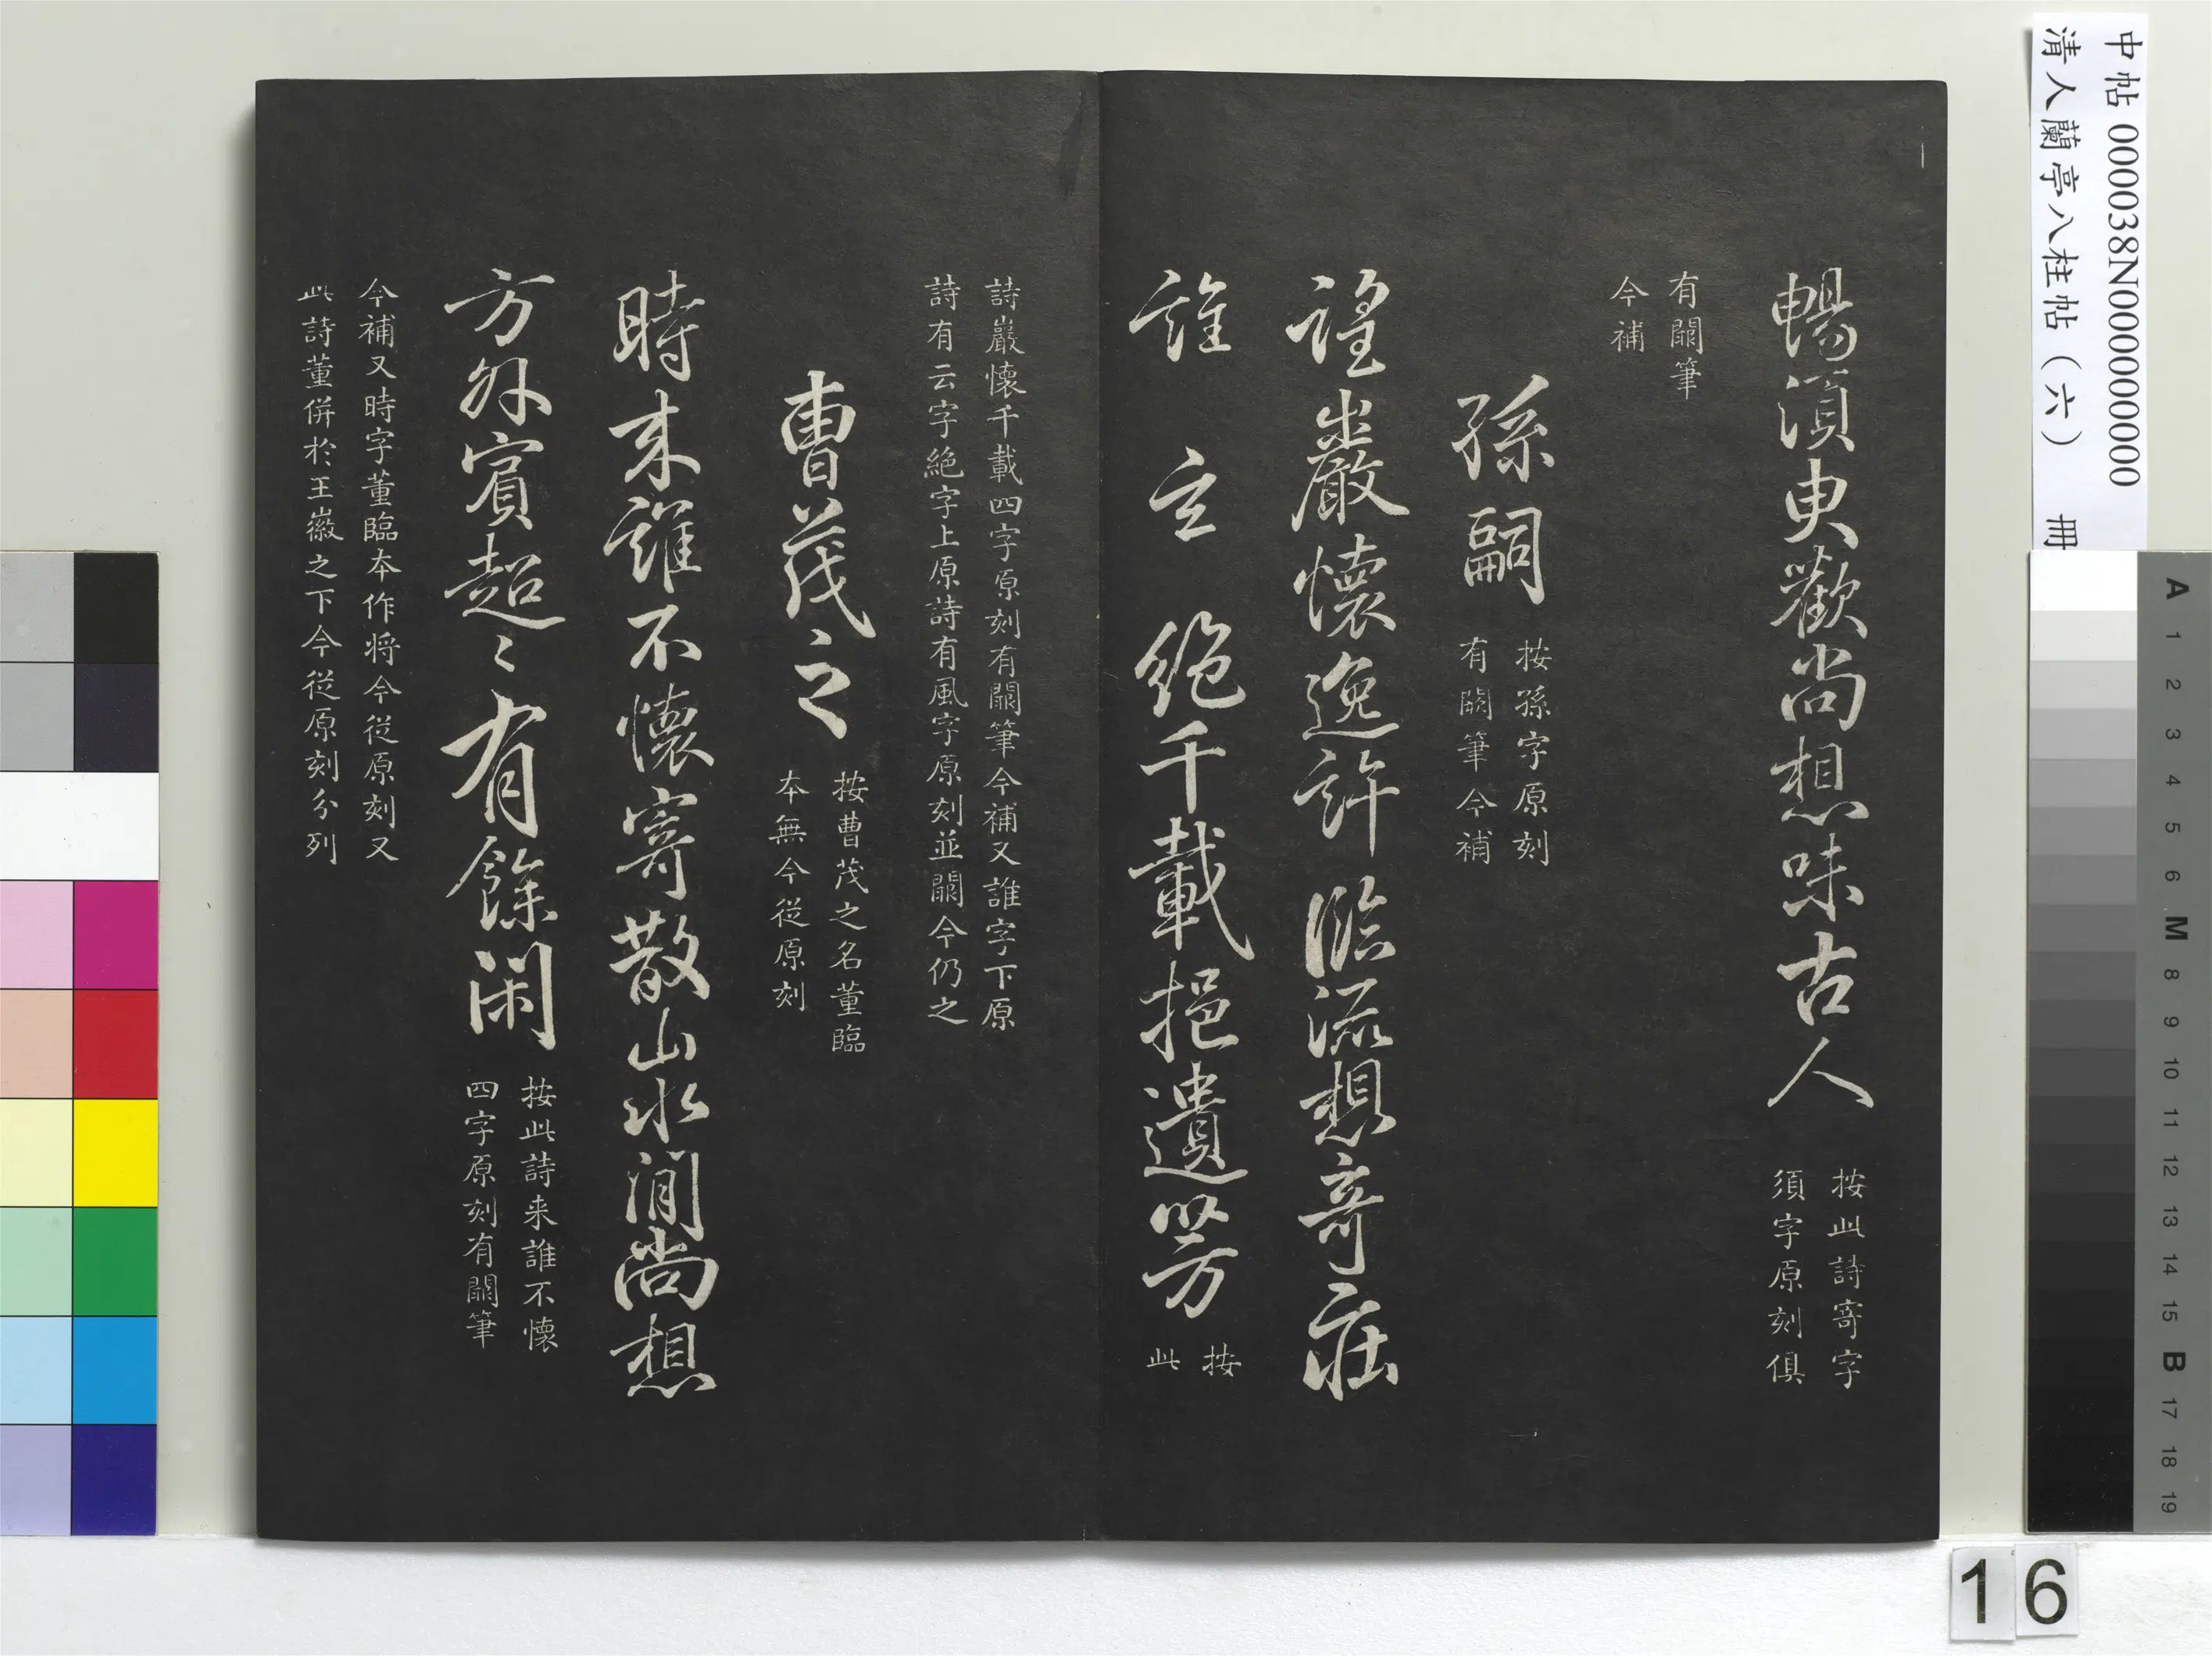 暢須臾歡尚想味古人
按此詩寄字
須字原刻俱
有闕筆
今補
孫嗣
按孫字原刻
有闕筆今補
望巖懷逸許臨流想奇莊
誰 云 絕千載挹遺芳
按
此
詩巖懷千載四字原刻有闕筆今補又誰字下原
詩有云字絕字上原詩有風字原刻並闕今仍之
曹茂之
按曹茂之名董臨
本無今從原刻
時来誰不懷寄散山水間尚想
方外賓超〻有餘閑
按此詩来誰不懷
四字原刻有闕筆
今補又時字董臨本作將今從原刻又
此詩董併於王徽之下今從原刻分列
中帖 000038N000000000
清人蘭亭八柱帖(六) 冊
A 1 2 3 4 5 6 M 8 9 10 11 12 13 14 15 B 17 18 19
16